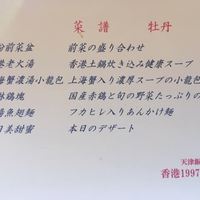 菜譜 牡丹
前菜盆 前菜の盛り合わせ
港老火湯 香港土鍋炊き込み健康スープ
海蟹濃湯小龍包 上海蟹入り濃厚スープの小龍包
鶏塊 国産赤鶏と旬の野菜たっぷりの
湯魚翅麺 フカヒレ入りあんかけ麺
日美甜蜜 本日のデザート
天津飯
香港1997